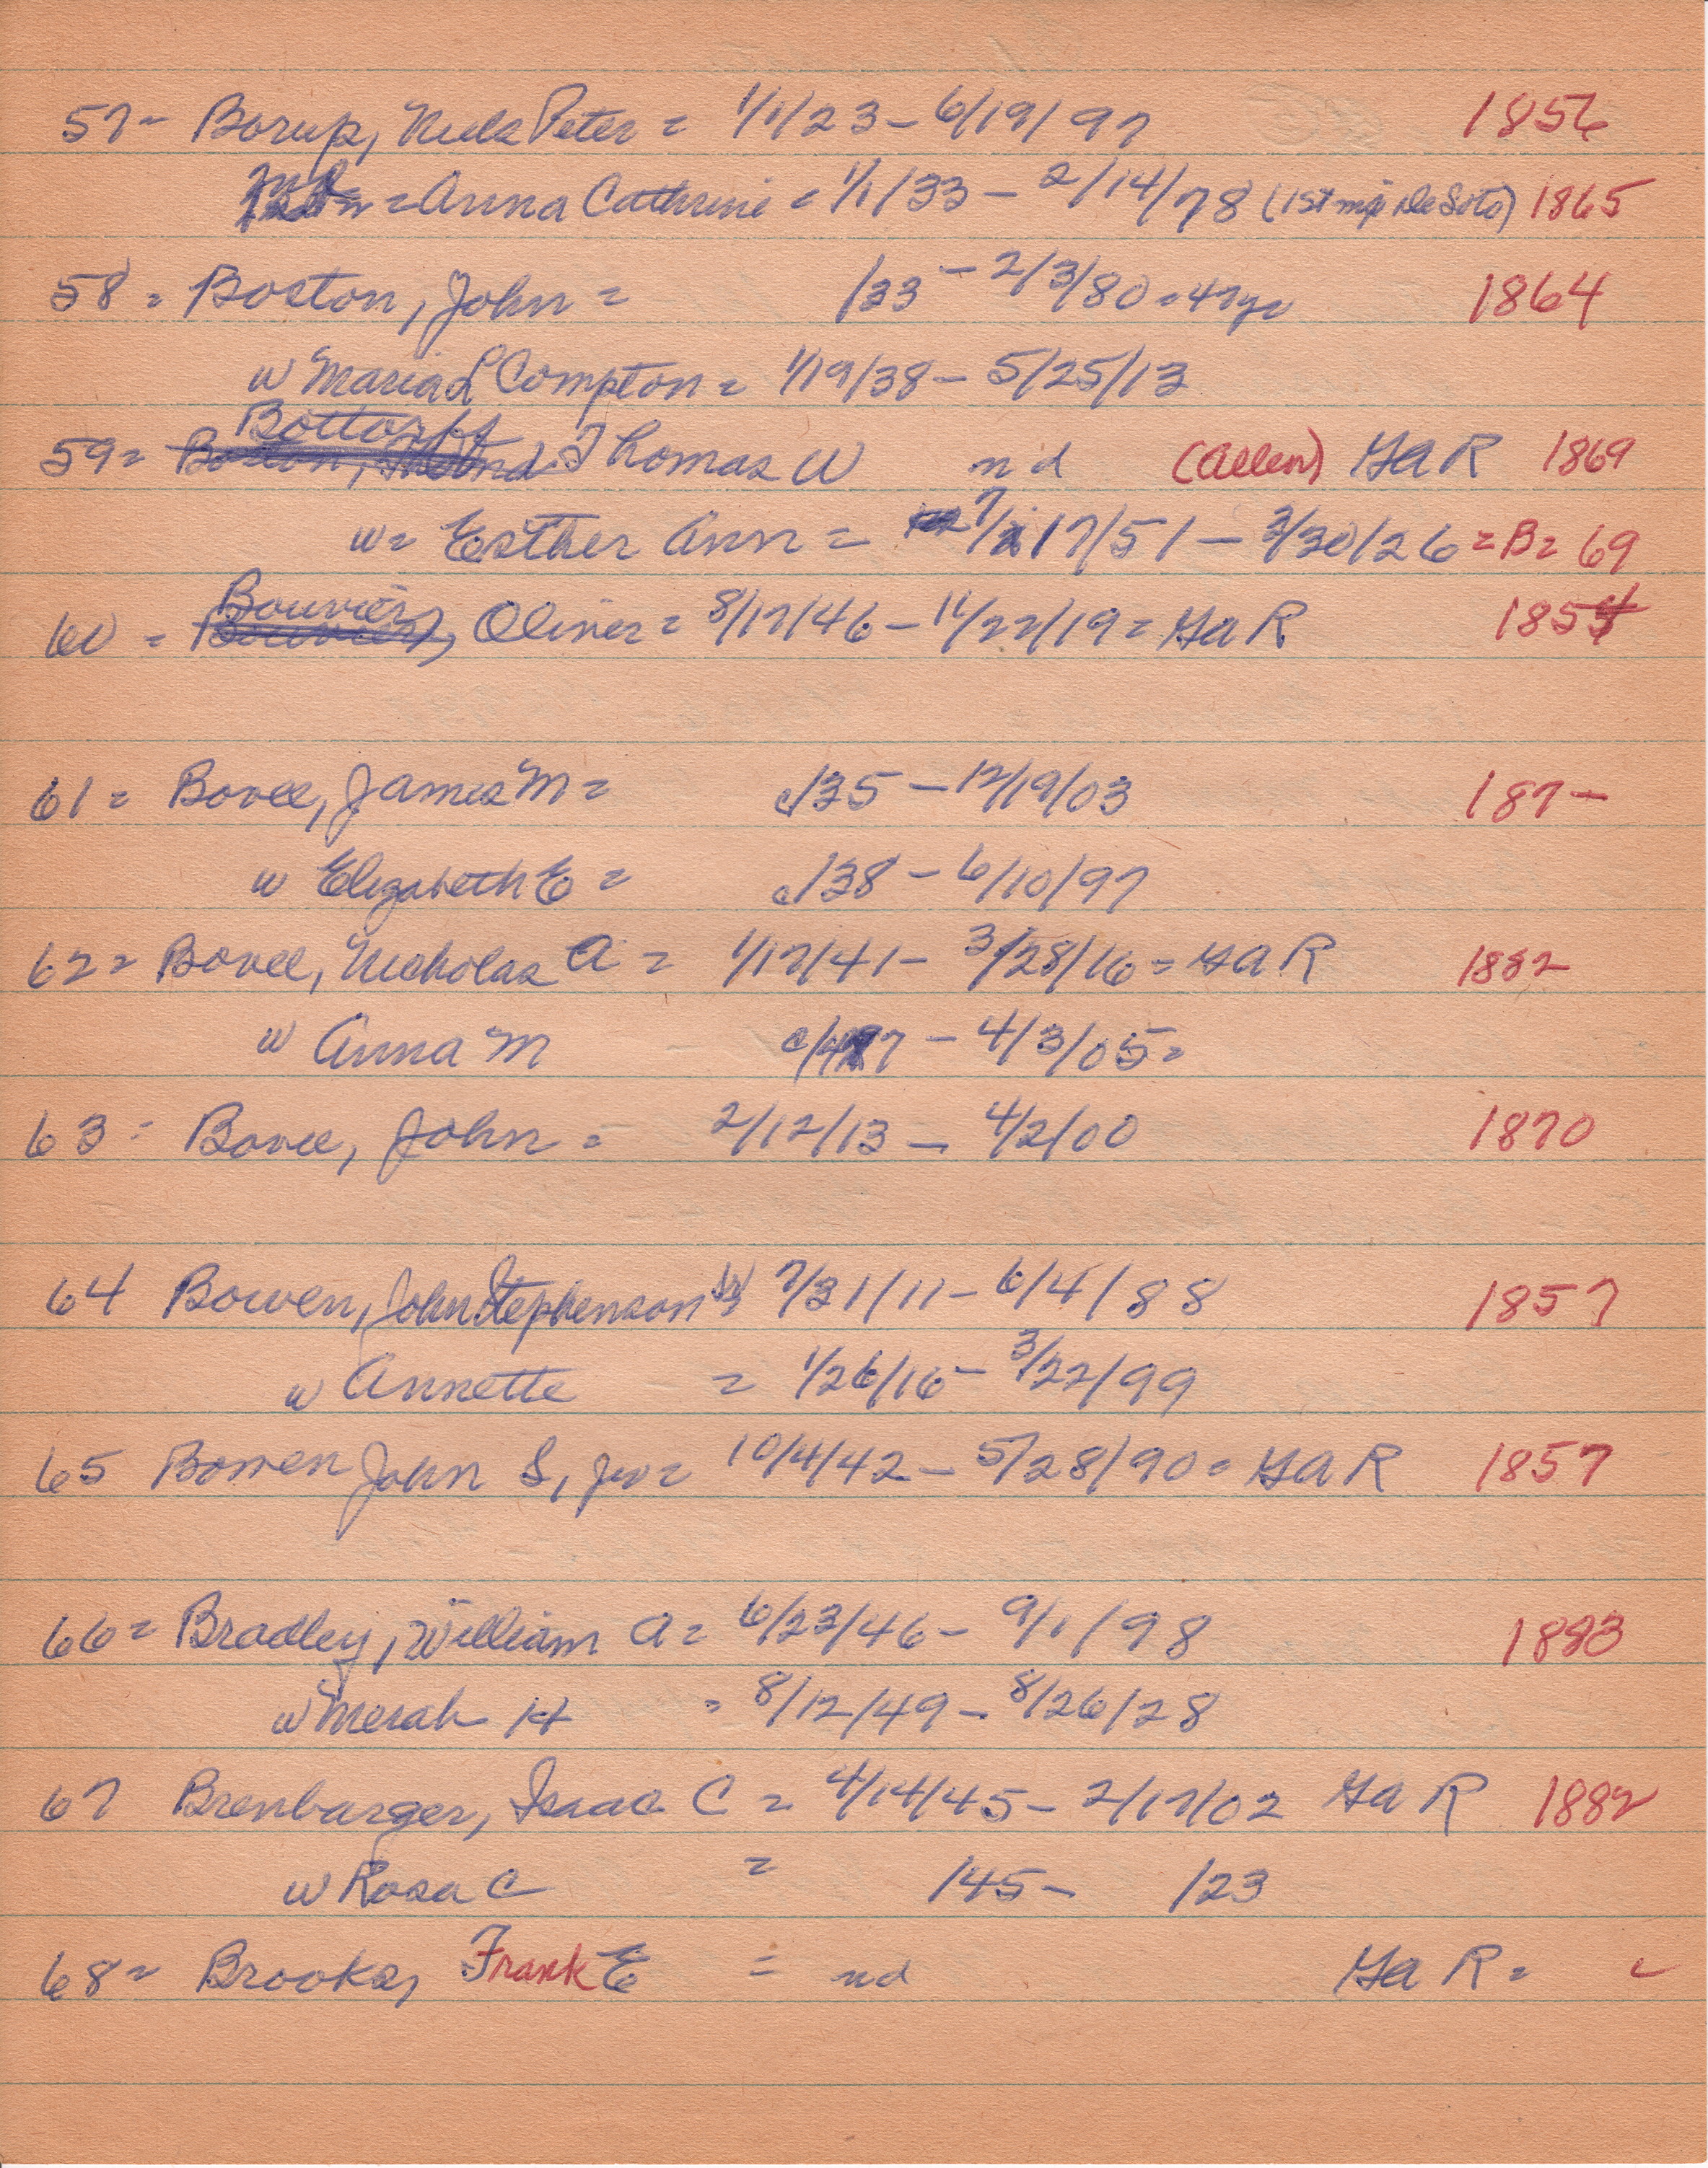 57- Borup, Niels Peter = 1/1/23 - 6/19/97 1856
= Anna Cathrine = 1/1/33 - 2/14/78 (1st mg DeSoto) 1865
58 = Boston, John = /33 - 2/3/80 = 47yr 1864
w Maria L Compton = 1/19/38 - 5/25/13
59= Bottorff Thomas W nd (Allen) GAR 1869
w= Esther Ann = 7/17/51 - 3/30/26 = B= 69
60 = Bouvier, Oliver = 8/17/46 - 11/22/19 = GAR 185
61 = Bovee, James M = c/35 - 12/19/03 187-
w Elizabeth E = c/38 - 6/10/97
62 = Bovee, Nicholas A = 1/17/41 - 3/28/16 = GAR 1882
w Anna M c/47 - 4/3/05 =
63 = Bovee, John = 2/12/13 - 4/2/00 1870
64 Bowen, John Stephenson Sr 7/31/11 - 6/4/88 1857
w Annette = 1/26/16 - 3/22/99
65 Bowen John S, jr = 10/4/42 - 5/28/90 = GAR 1857
66 = Bradley, William A = 6/23/46 - 9/1/98 1883
w Merah H = 8/12/49 - 8/26/28
67 Brenbarger, Isaac C = 4/14/45 - 2/17/02 GAR 1882
w Rosa C = /45 - /23
68 = Brooks, Frank E = nd GAR =